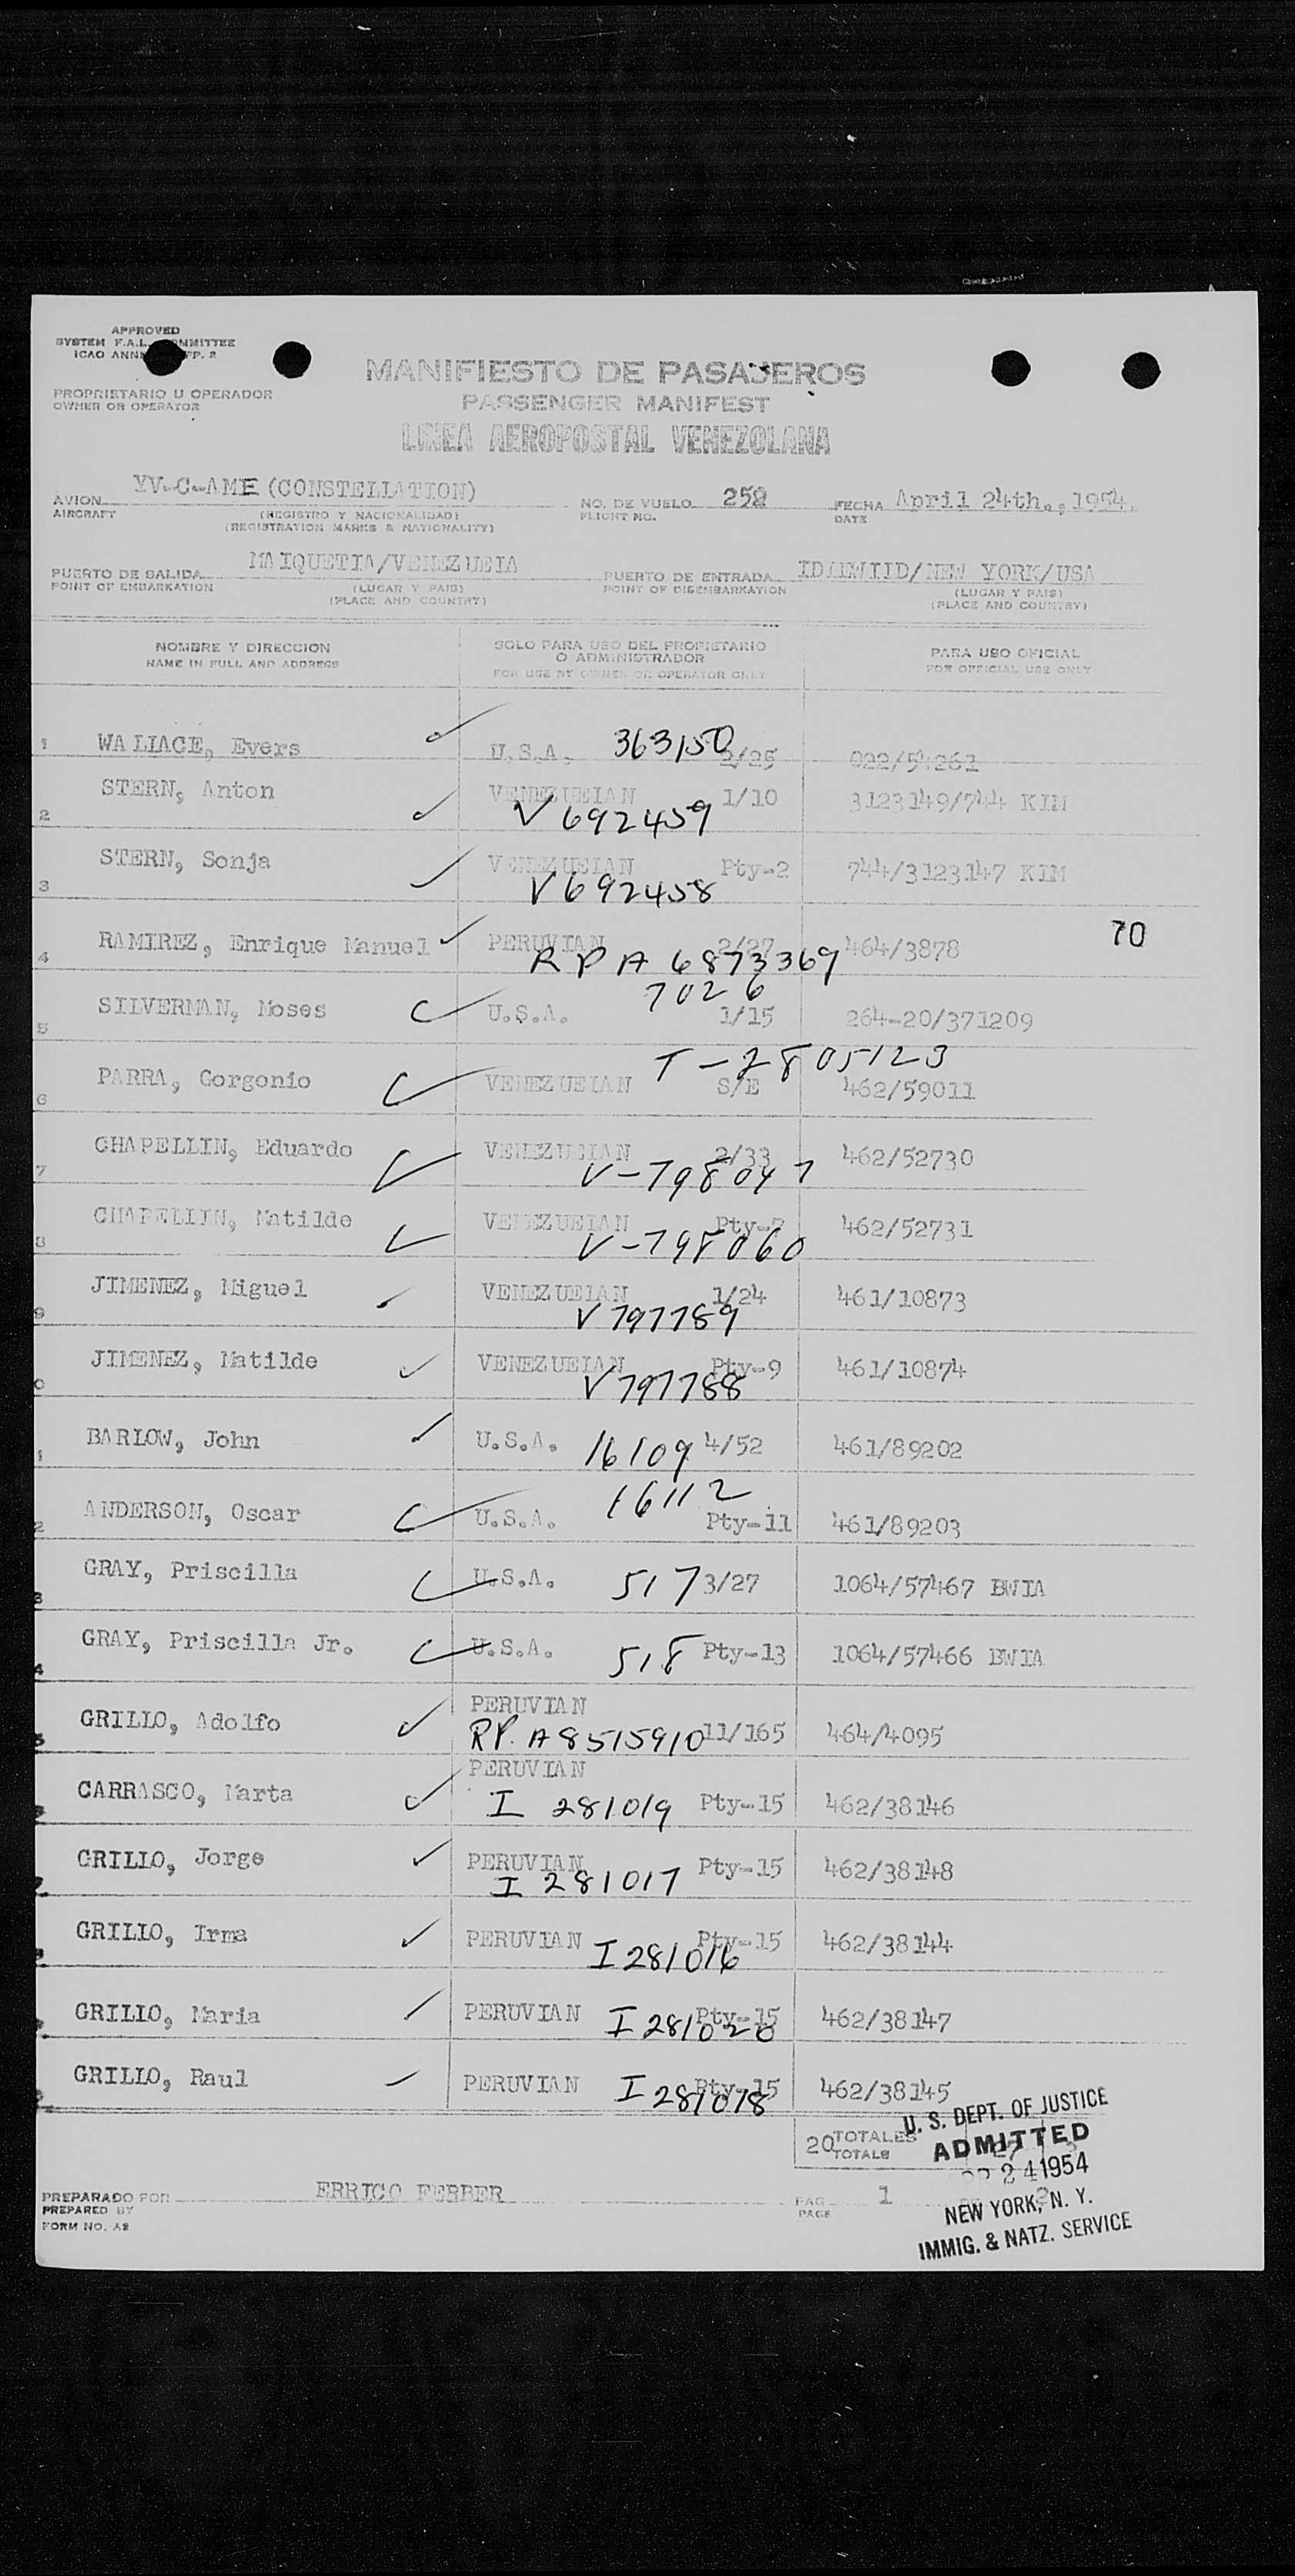 APPROVED
SYSTEM F.A.L. COMMITTEE
ICAO ANNEX APP. 2
PROPRIETARIO U OPERADOR
OWNER OR OPERATOR
MANIFIESTO DE PASAJEROS
PASSENGER MANIFEST
LINEA AEROPOSTAL VENEZOLANA
AVION YV-C-AME (CONSTELLATION) NO. DE VUELO 252 FECHA April 24th., 1954.
AIRCRAFT (REGISTRO Y NACIONALIDAD) FLIGHT NO. DATE
(REGISTRATION MARKS & NATIONALITY)
PUERTO DE SALIDA MAIQUETIA/VENEZUELA PUERTO DE ENTRADA IDLEWILD/NEW YORK/USA
POINT OF EMBARKATION (LUGAR Y PAIS) POINT OF DISEMBARKATION (LUGAR Y PAIS)
(PLACE AND COUNTRY) (PLACE AND COUNTRY)
NOMBRE Y DIRECCION SOLO PARA USO DEL PROPIETARIO O ADMINISTRADOR PARA USO OFICIAL
NAME IN FULL AND ADDRESS FOR USE BY OWNER OR OPERATOR ONLY FOR OFFICIAL USE ONLY
1 WALLACE, Evers U.S.A. 363150 2/25 022/54261
2 STERN, Anton VENEZUELAN 1/10 3123149/744 KLM
V 692459
3 STERN, Sonja VENEZUELAN Pty-2 744/3123147 KLM
V 692458
4 RAMIREZ, Enrique Manuel PERUVIAN 2/27 464/3878 70
R P A 6873369
7026
5 SILVERMAN, Moses U.S.A. 1/15 264-20/371209
T-2805123
6 PARRA, Gorgonio VENEZUELAN S/E 462/59011
7 CHAPELLIN, Eduardo VENEZUELAN 2/33 462/52730
V-798047
8 CHAPELLIN, Matilde VENEZUELAN Pty-7 462/52731
V-798060
9 JIMENEZ, Miguel VENEZUELAN 1/24 461/10873
V 797789
0 JIMENEZ, Matilde VENEZUELAN Pty-9 461/10874
V 797788
1 BARLOW, John U.S.A. 16109 4/52 461/89202
16112
2 ANDERSON, Oscar U.S.A. Pty-11 461/89203
3 GRAY, Priscilla U.S.A. 517 3/27 1064/57467 BWIA
4 GRAY, Priscilla Jr. U.S.A. 518 Pty-13 1064/57466 BWIA
PERUVIAN
5 GRILLO, Adolfo RP. A8515910 11/165 464/4095
PERUVIAN
CARRASCO, Marta I 281019 Pty-15 462/38146
GRILLO, Jorge PERUVIAN Pty-15 462/38148
I 281017
GRILLO, Irma PERUVIAN Pty-15 462/38144
I 281016
GRILLO, Maria PERUVIAN Pty-15 462/38147
I 281020
GRILLO, Raul PERUVIAN Pty-15 462/38145
I 281018
20 TOTALES
TOTALS
U. S. DEPT. OF JUSTICE
ADMITTED
24 1954
NEW YORK, N. Y.
IMMIG. & NATZ. SERVICE
PREPARADO POR ERRICO FERRER PAG. 1
PREPARED BY PAGE
FORM NO. A2